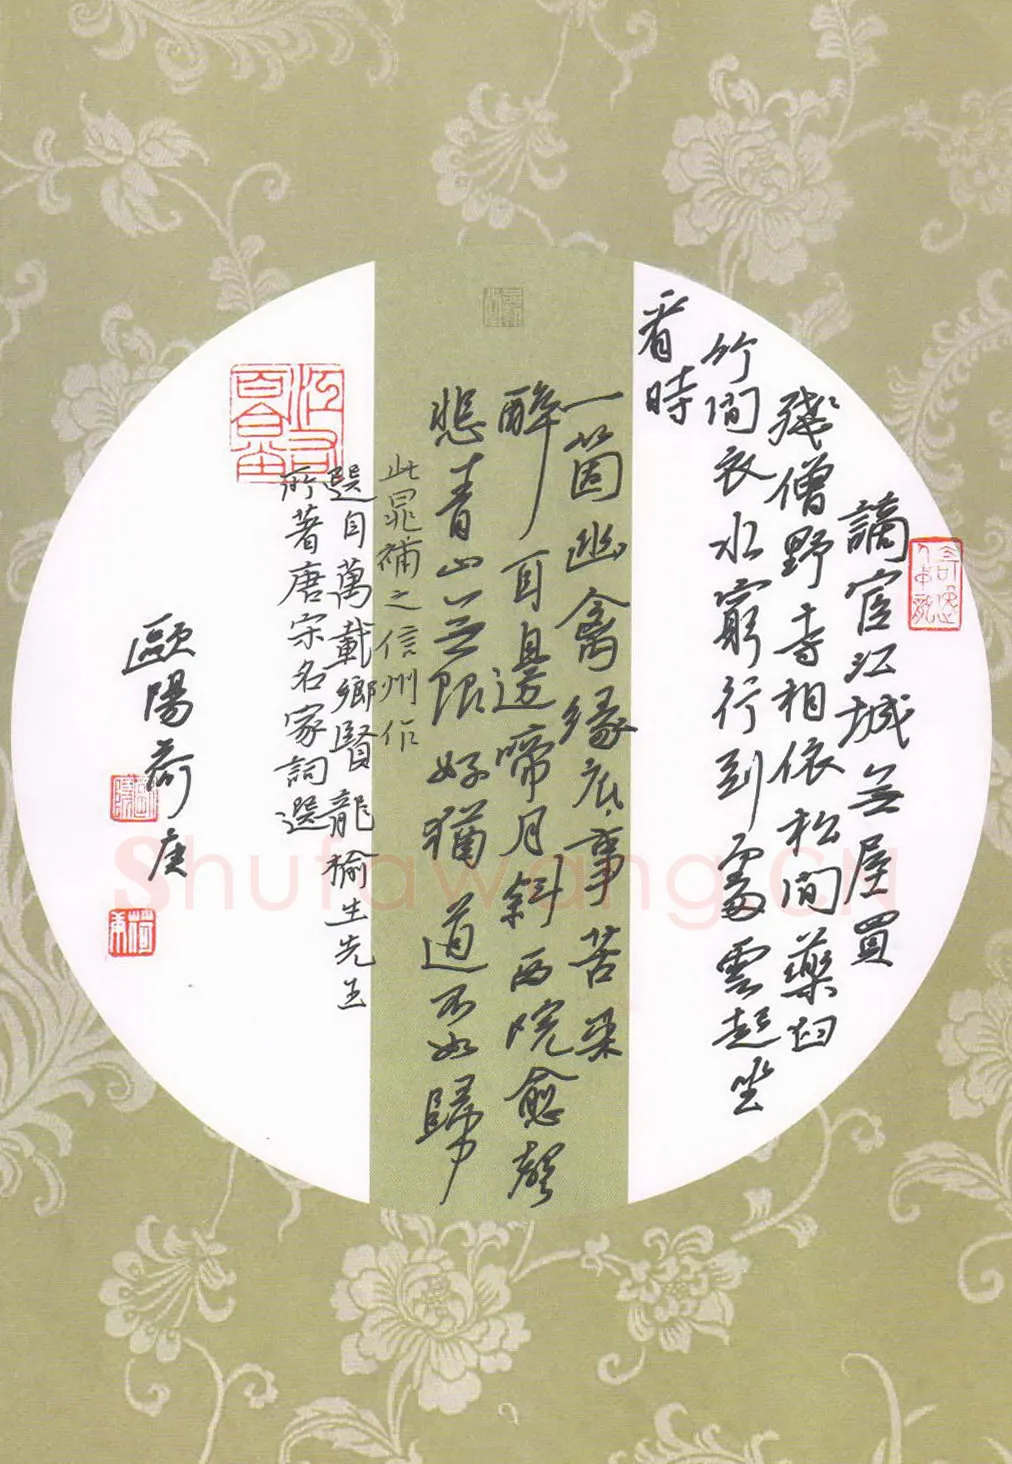 謫官江城無屋買
殘僧野寺相依松間藥臼
竹間衣水窮行到處雲起坐
看時
一箇幽禽緣底事苦來
醉耳邊啼月斜西院愈聲
悲青山無限好猶道不如歸
此晁補之信州作
選自萬載鄉賢龍榆生先生
所著唐宋名家詞選
歐陽荷庚
Shufawang.CN